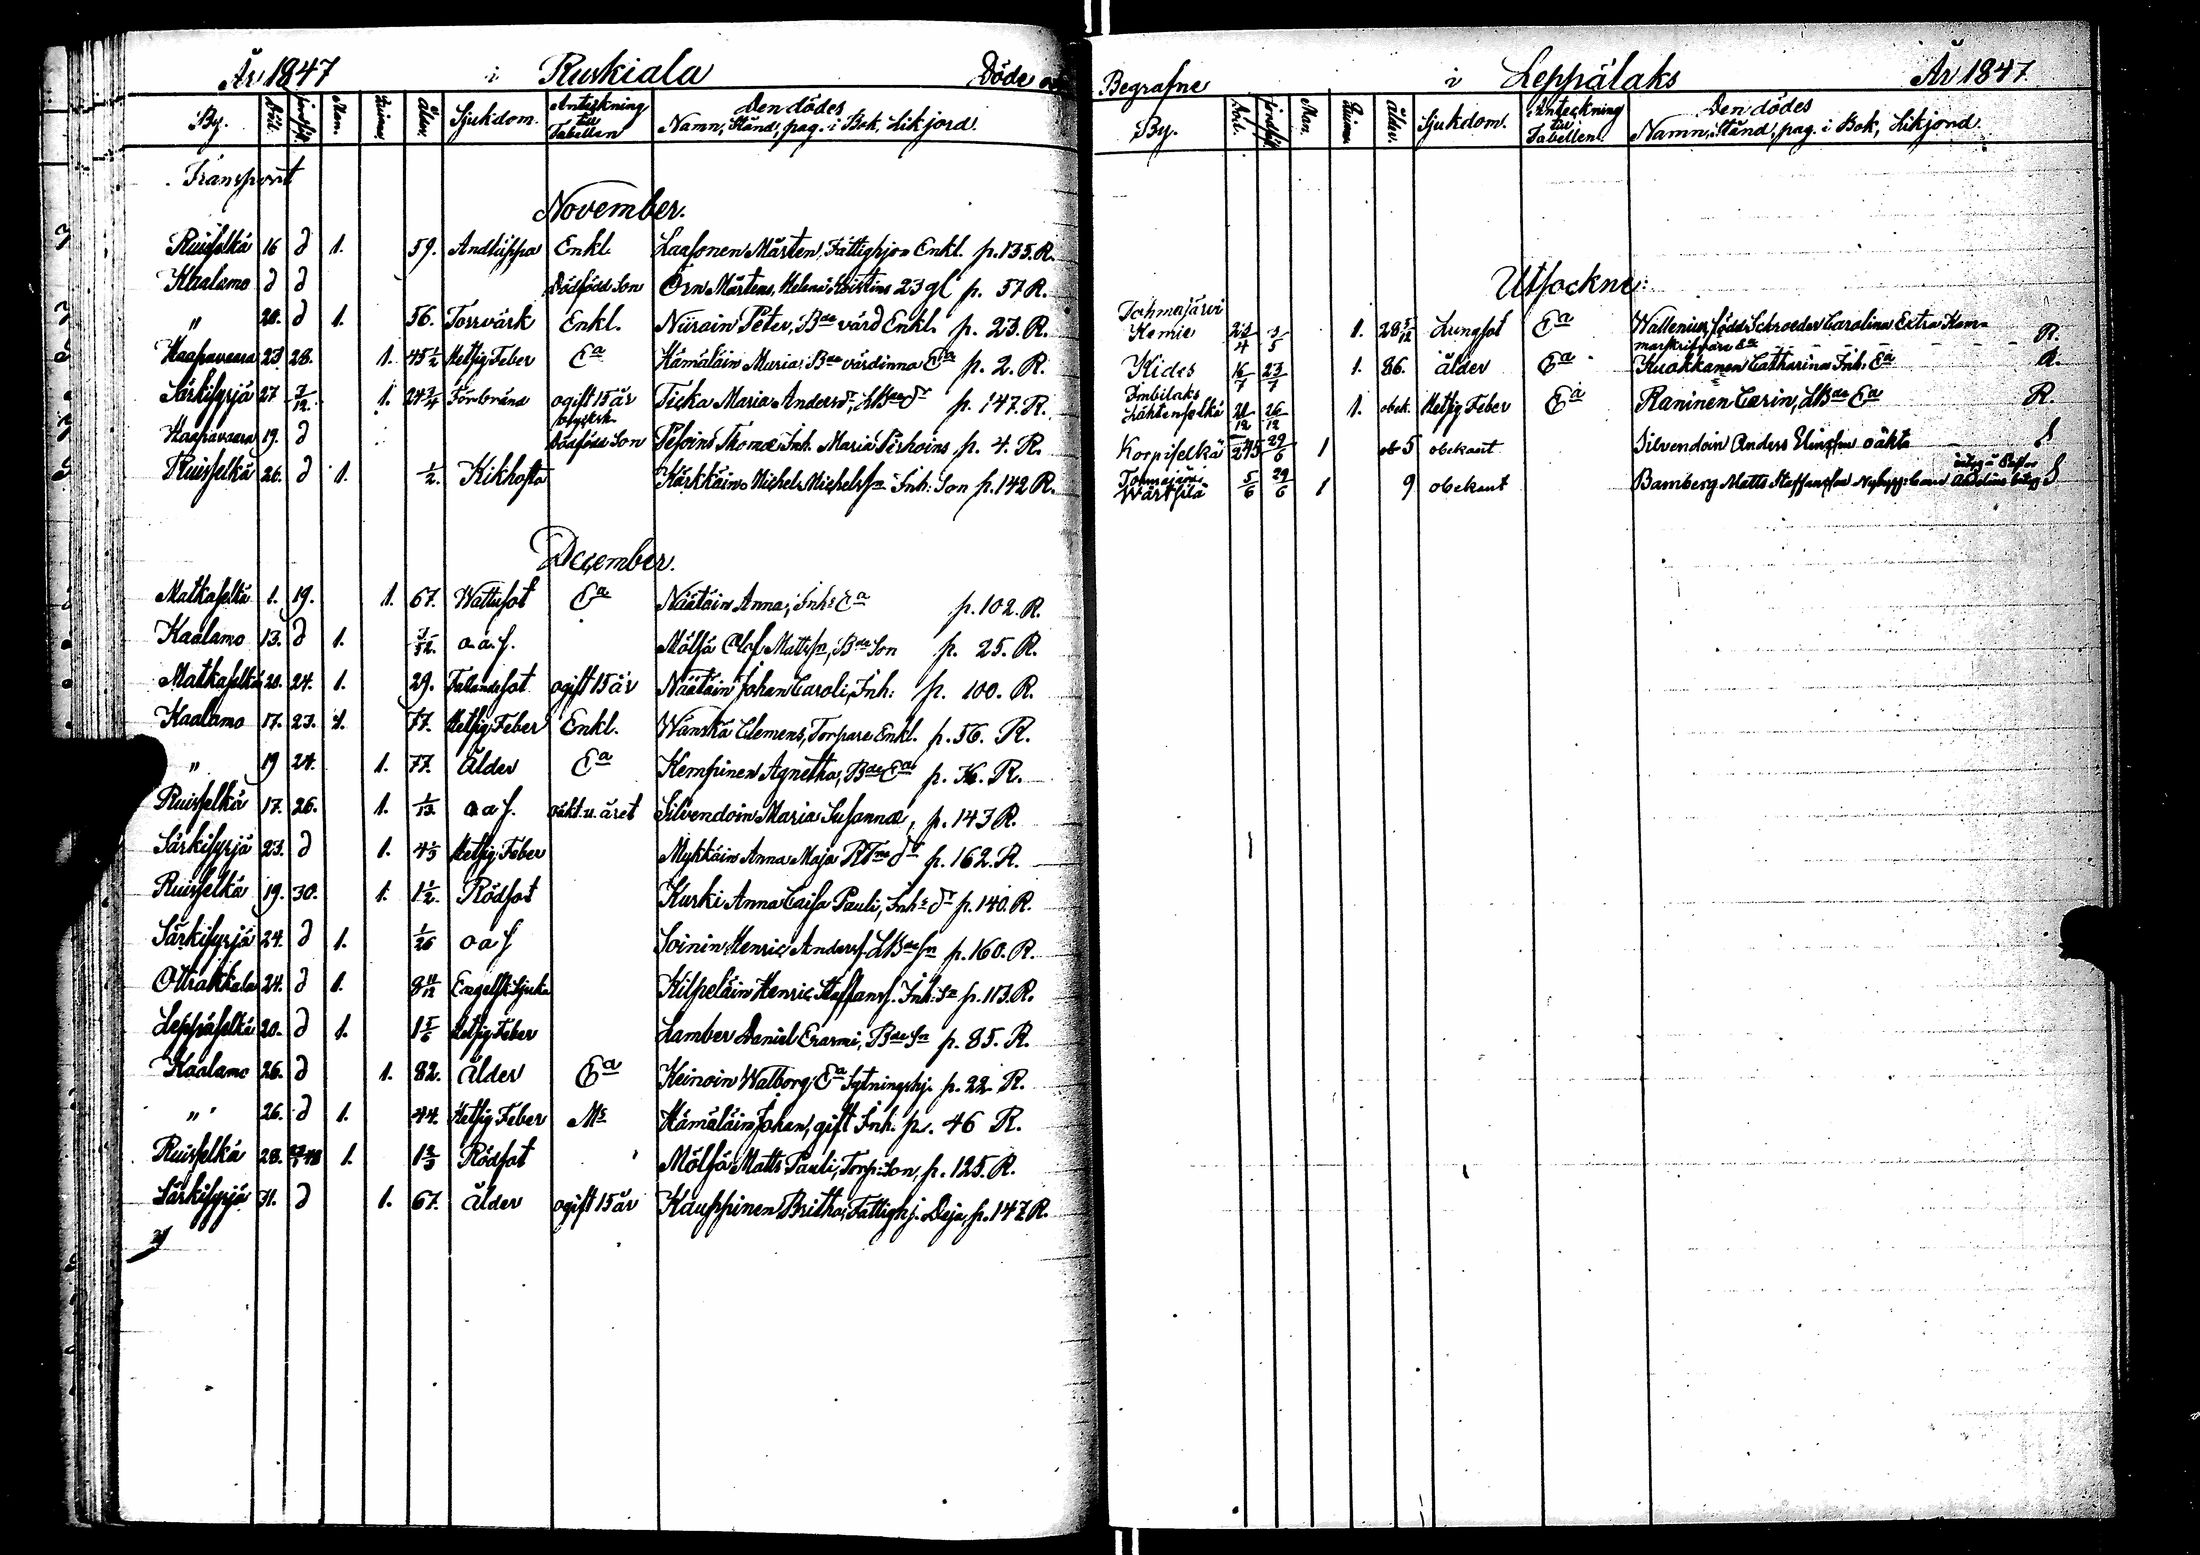 År 1847 i Ruskiala Döde
By. Död. jordf. Man. Quinna. Ålder. Sjukdom. Anteckning till Tabellen Den dödes Namn, Stånd, pag. i Bok, Likjord.
Transport
November.
Ruisselkä 16 d 1. 59. Andtäppa Enkl. Laasonen Mårten, Fattighjon Enkl. p. 135. R.
Kaalamo d d Dödfödd Son Örn Mårtens, Helena 23 gl p. 57 R.
" 20. d 1. 56. Torrvärk Enkl. Niirain Peter, Bde värd Enkl. p. 23. R.
Haapavaara 23. 28. 1. 45 1/2 Hetsig Feber Ea Hämäläin Maria, Bde värdinna Ea p. 2. R.
Särkisyrjä 27 3/12. 1. 24 3/4 Förbränd ogift 15 år Ticka Maria Andersdr, LBde dr p. 147. R.
Haapavaara 19. d Dödfödd Son Pesoins Thomæ Inh. Maria p. 4. R.
Ruisselkä 26. d 1. 1/2. Kikhosta Kärkkäin Michel Michelssn Inh. Son p. 142 R.
December.
Matkaselkä 1. 19. 1. 67. Wattusot Ea Näätäin Anna, Inhs Ea p. 102. R.
Kaalamo 13. d 1. 3/52. o.a.s. Mölsä Olof Mattssn, Bde Son p. 25. R.
Matkaselkä 20. 24. 1. 29. Fallandesot ogift 15 år Näätäin Johan Caroli, Inh: p. 100. R.
Kaalamo 17. 23. 1. 77. Hetsig Feber Enkl. Wänskä Clemens, Torpare Enkl. p. 56. R.
" 19 24. 1. 77. Ålder Ea Kempinen Agnetha, Bde Ea p. R.
Ruisselkä 17. 26. 1. 1/13. o a s. oäkt. u. året Silvendoin Maria Susannæ, p. 143 R.
Särkisyrjä 23. d 1. 4 1/3 Hetsig Feber Mykkäin Anna Maja dr p. 162. R.
Ruisselkä 19. 30. 1. 1 1/2. Rödsot Kurki Anna Caisa Pauli, Inhs dr p. 140. R.
Särkisyrjä 24. d 1. 1/26 o a s Soinin Henric Anderss. LBde sn p. 160. R.
Otrakkala 24. d 1. 8 11/12 Engelsk Sjuka Kilpeläin Henric Staffanss. Inh: Sn p. 113. R.
Leppäselkä 20. d 1. 1 5/6 Hetsig Feber Lamber Daniel Erasmi, Bde Sn p. 85. R.
Kaalamo 26. d 1. 82. Ålder Ea Keinoin Walborg, Ea Sytningshj. p. 22. R.
" 26. d 1. 44. Hetsig Feber Ms Hämäläin Johan, gift Inh. p. 46 R.
Ruisselkä 28. 1. 1 2/3 Rödsot Mölsä Matts Pauli, Torp: Son, p. 125. R.
Särkisyrjä 31. d 1. 67. Ålder ogift 15 år Kauppinen Britha, Fattighj. Deja, p. 147. R.
Begrafne i Leppälaks År 1847
By. Död. jordf. Man. Quinna Ålder. Sjukdom. Anteckning till Tabellen. Den dödes Namn, Stånd, pag. i Bok, Likjord.
Utsockne:
Tohmajärvi
Kemie 23/4 3/5 1. 28 5/12 Lungsot Ea Wallenius, född Schroeder Carolina Extra Kam-
R.
Kides 16/7 23/7 1. 86. Ålder Ea Kuokkanen Catharina Inh. Ea R.
Imbilaks
Lähtenselkä 20/12 26/12 1. obek. Hetsig Feber Ea Raninen Carin, LBde Ea R.
Korpiselkä 29/6 1 5 obekant Silvendoin Anders Elinssn oäkta S
Tohmajärvi
Wärtsilä 5/6 29/6 1 9 obekant Bamberg Matts Staffansson S